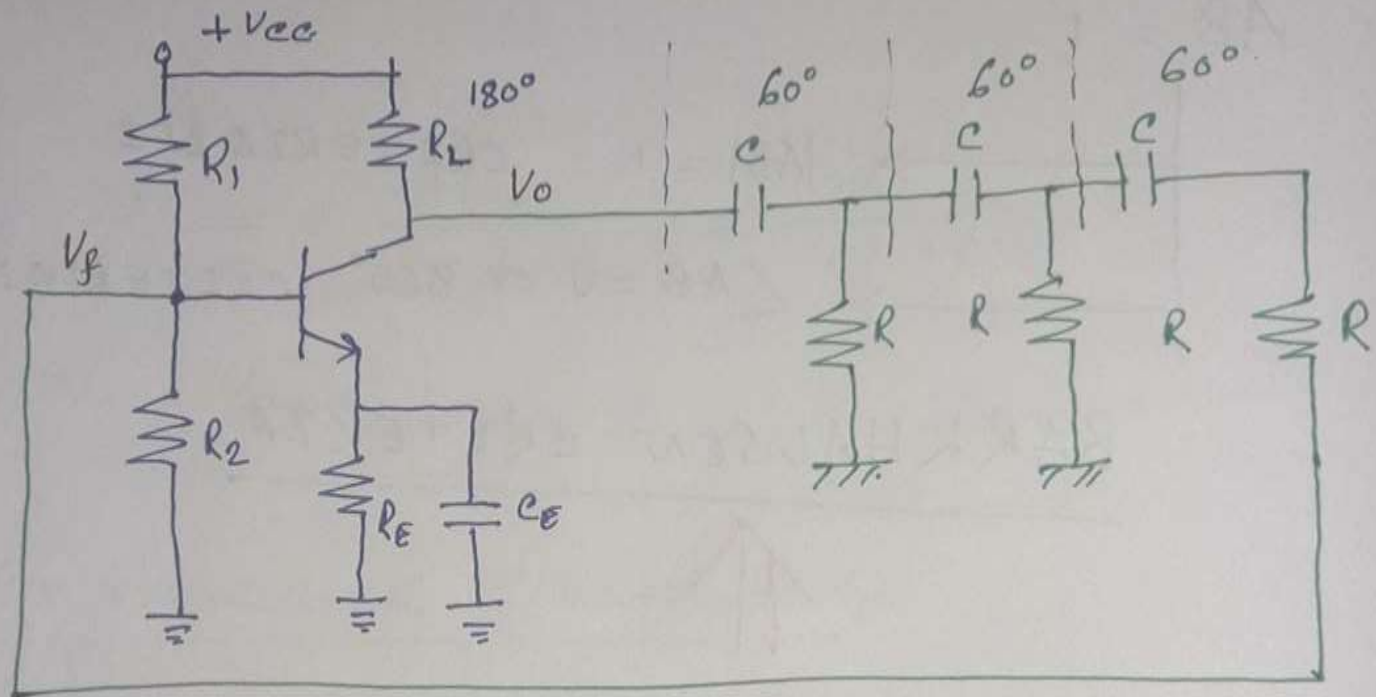 +Vcc
180°
60°
60°
60°
R1
RL
C
C
C
Vo
Vf
R
R
R
R
R2
RE
CE